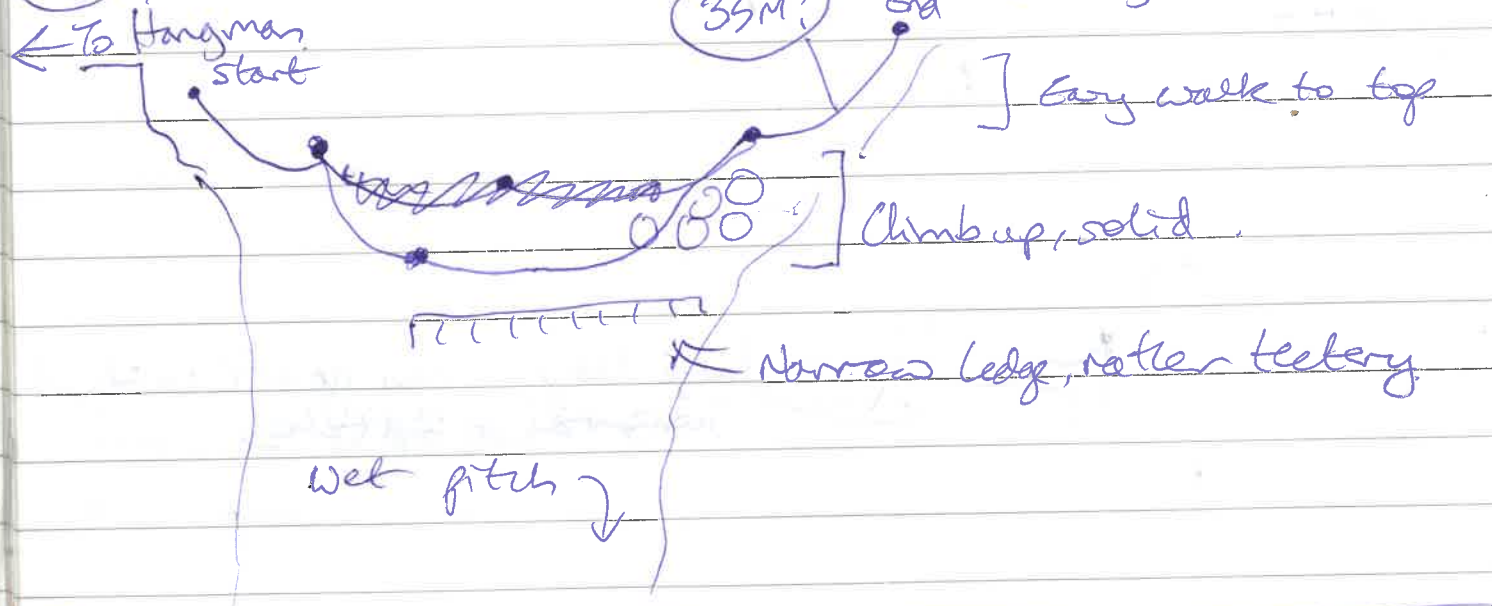 ← To Hangman
start
35M
End
Easy walk to top
Climb up, solid.
Narrow ledge, rather teetery.
Wet pitch